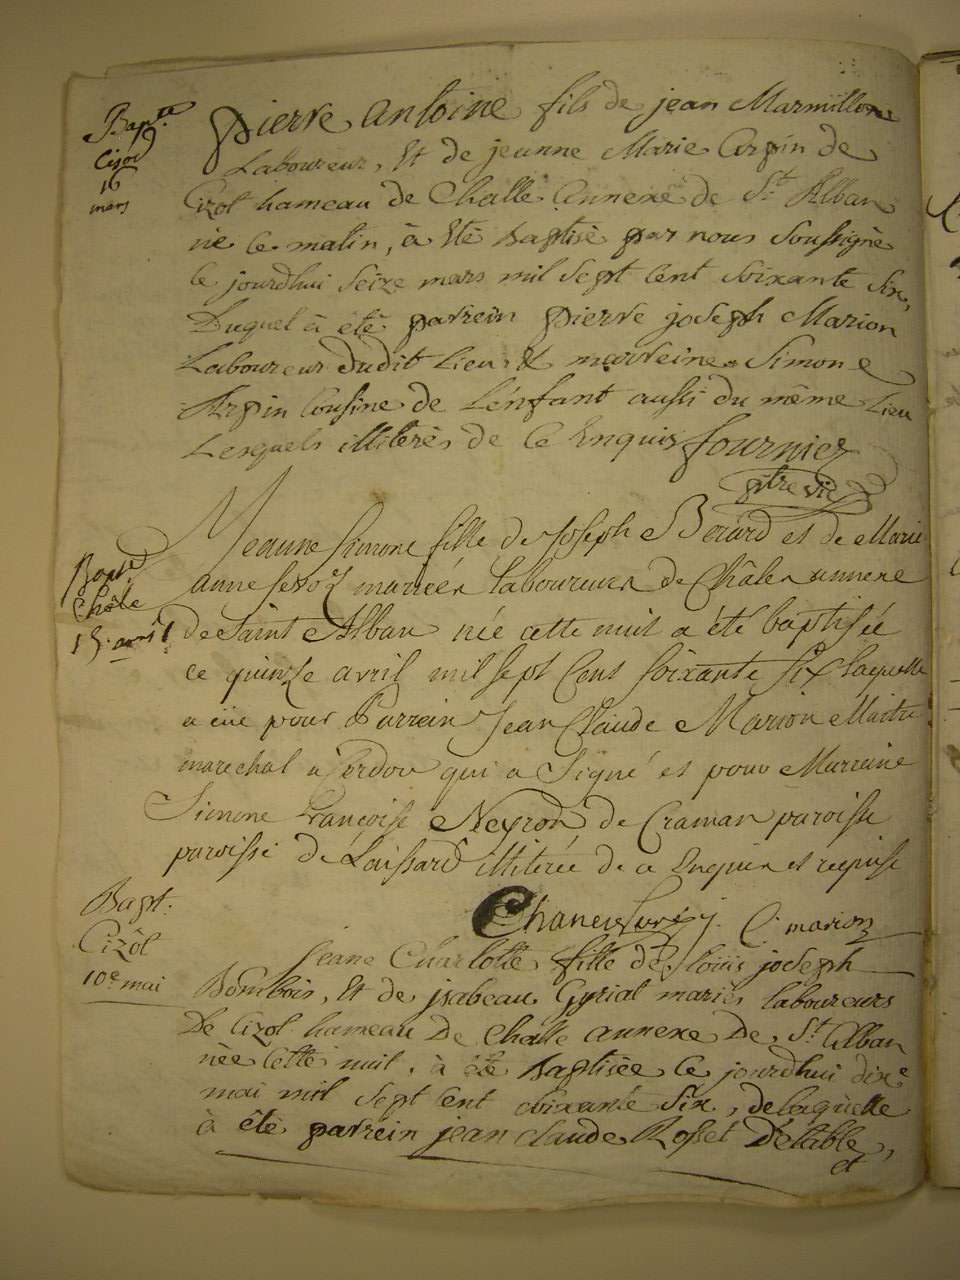 Bapte
Cizod
16
mars
pierre antoine fils de jean Marmillon
Laboureur, Et de jeanne Marie Arpin de
Cizol hameau de Challe annexe de St Alban
né ce matin, à Eté Baptisé par nous soussigné
ce jourdhui seize mars mil sept cent soixante six,
Duquel à été parrein pierre joseph Marion
Laboureur dudit Lieu, & marreine Simone
Arpin Cousine de L'enfant aussi du même Lieu
Lesquels illiterés de ce Enquis fournier
ptre vic
Bapte
Châle
15. avril
Jeanne Simone fille de Joseph Berard et de Marie
anne mariéer laboureurer de Châler annexe
de Saint Alban née cette nuit a été baptisée
ce quinze avril mil sept Cent soixante six laquelle
a eüe pour Parrein Jean Claude Marion Maitre
marechal a Cerdon qui a Signé et pour Marreine
Simone françoise Neyron de Craman paroisse
paroisse de Laissard illiterée de ce Enquise et requise
C. marion
Bapt.
Cizôl
10e mai
Jeane Charlotte fille de Loüis joseph
Bombois, Et de jsabeau Gyriat mariés laboureurs
De Cizol hameau De Challe annexe De St Alban
née Cette nuit, à été Baptisée ce jourdhui dixe
mai mil sept cent soixante six, de laquelle
à été parrein jean claude Rosset D'étable,
et